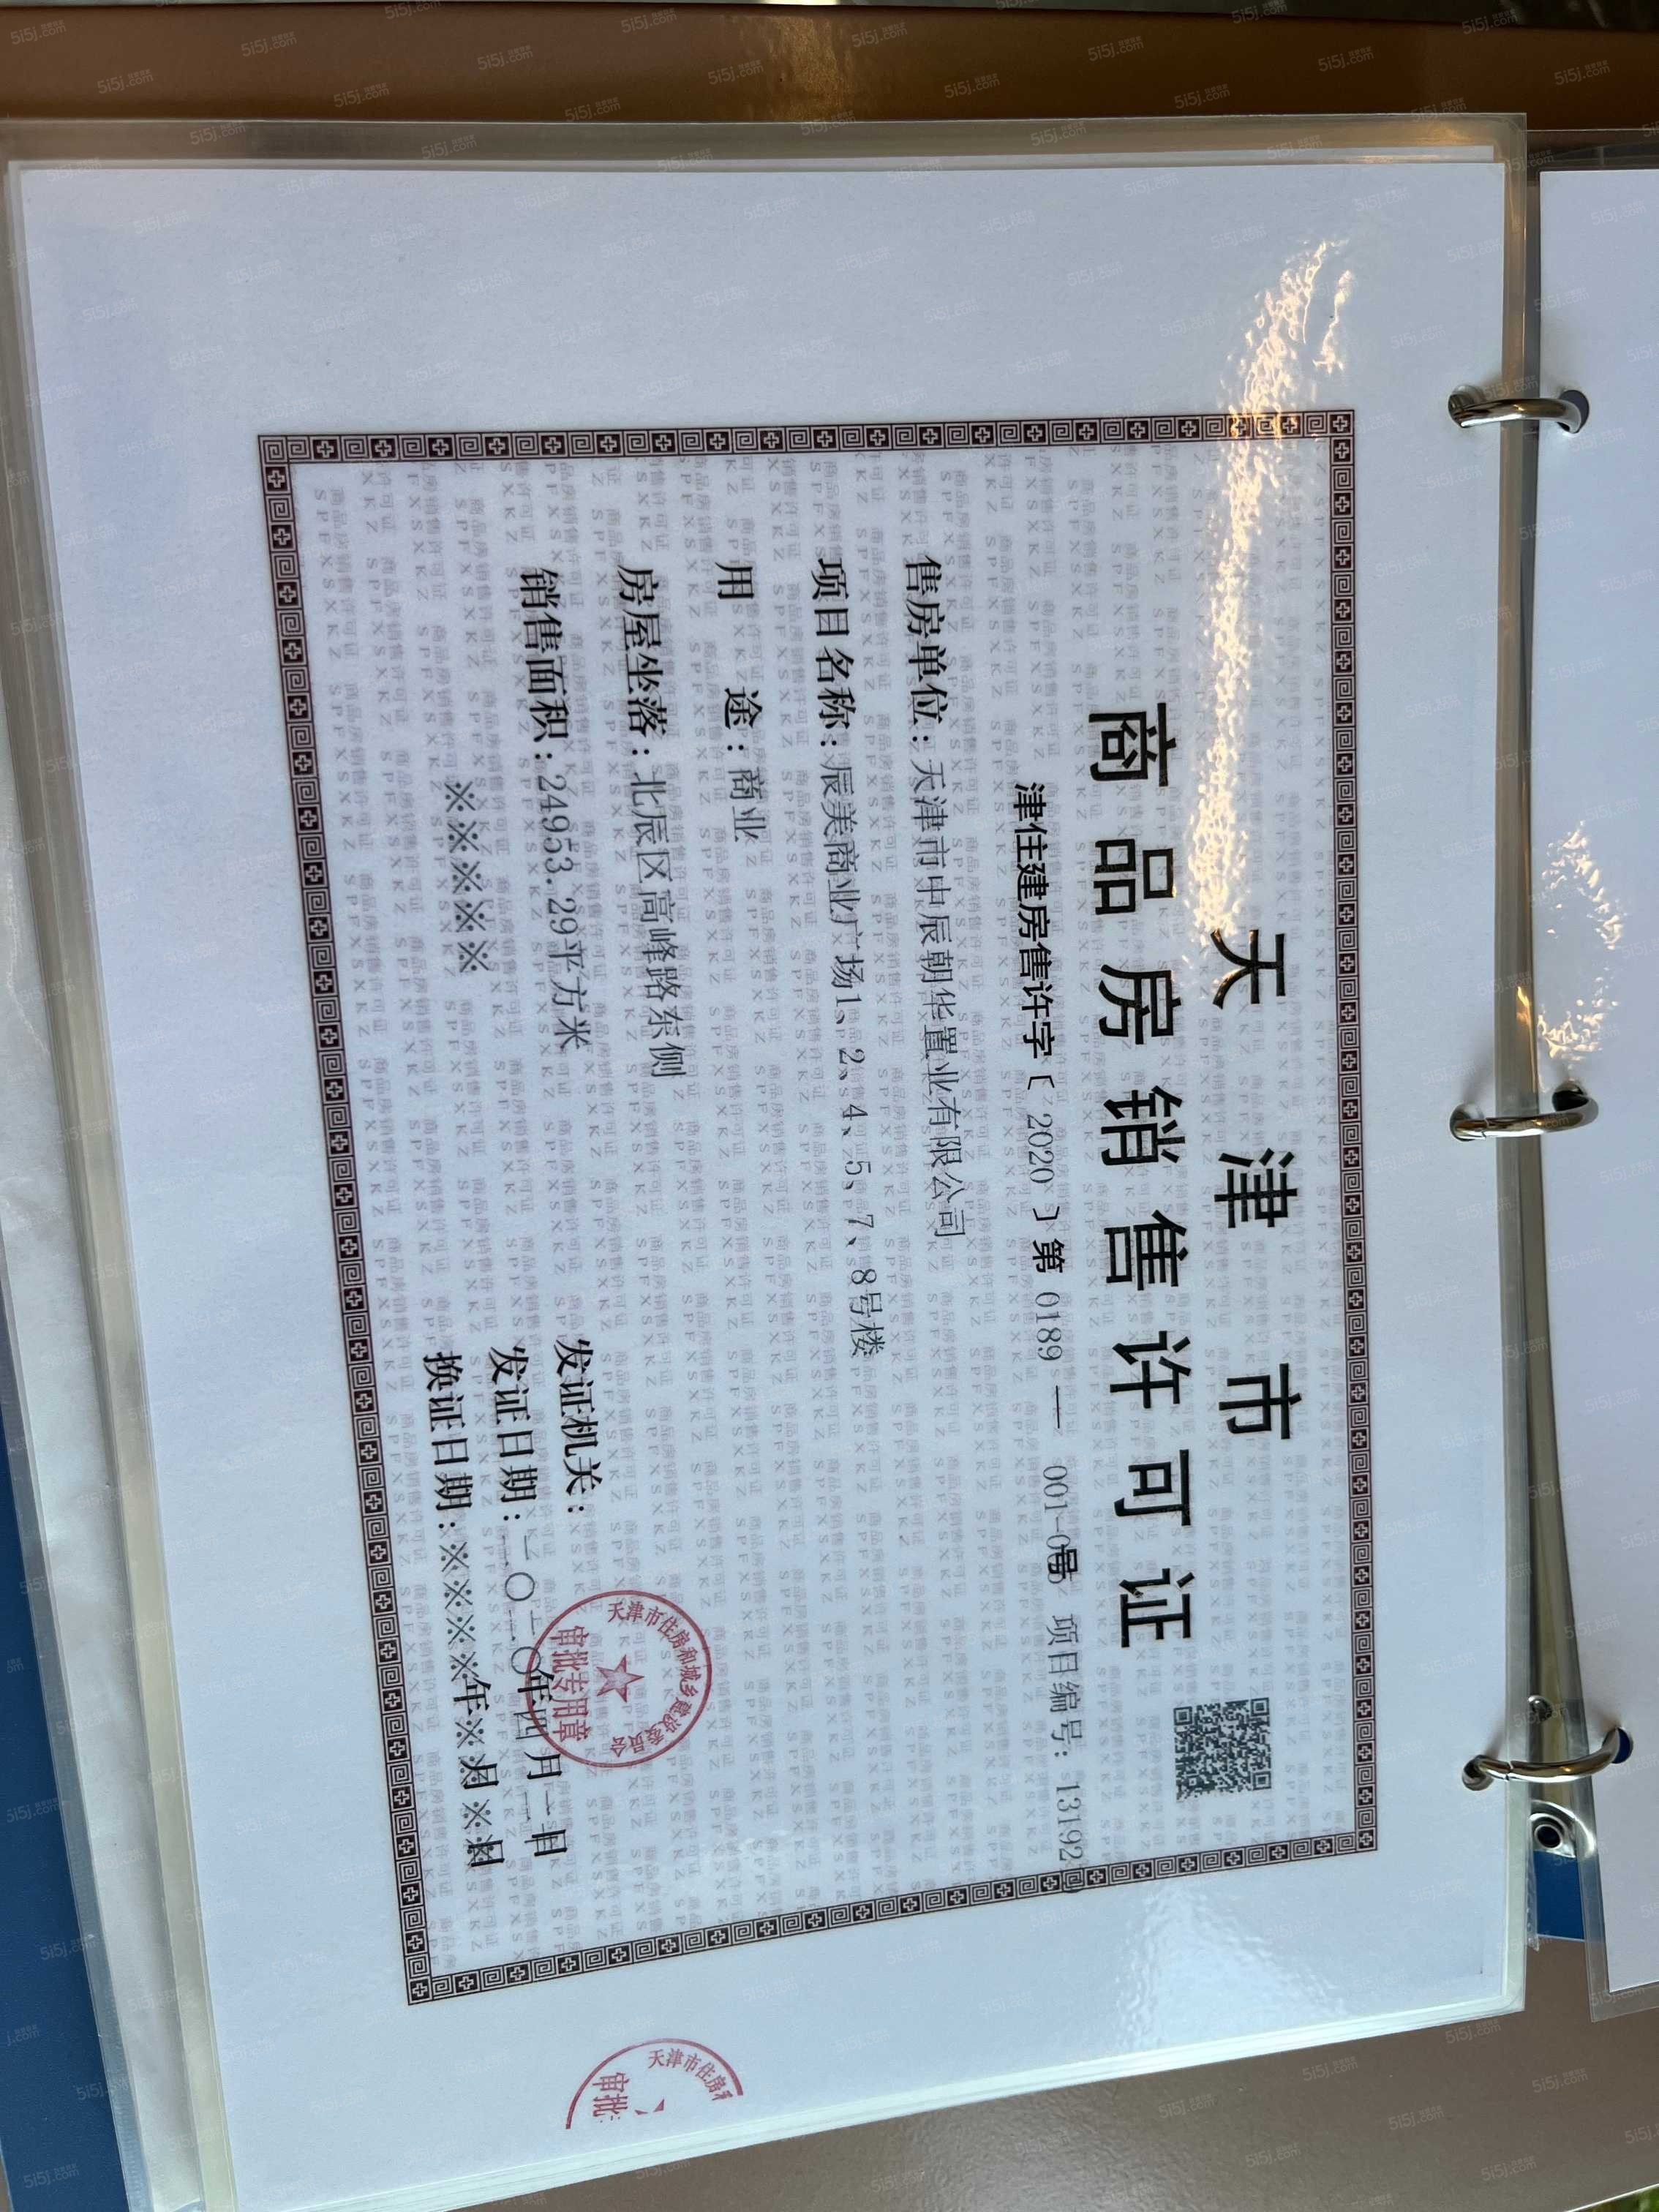 天津市
商品房销售许可证
津住建房售许字〔2020〕第 0189 — 001-0 号 项目编号: 131992
售房单位:天津市中辰朝华置业有限公司
项目名称:辰美商业广场1、2、4、5、7、8号楼
用途:商业
房屋坐落:北辰区高峰路东侧
销售面积:24953.29平方米
※※※※※
发证机关:
发证日期:二〇二〇年四月二日
换证日期:※※※※年※月※日
天津市住房和城乡建设委员会
审批专用章
天津市住房和
审批